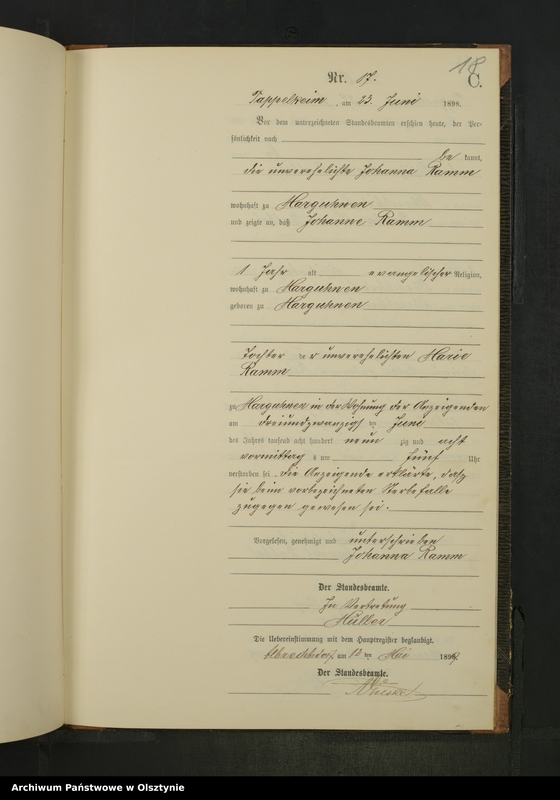 18
C.
Nr. 17.
Tappelkeim, am 23. Juni 1898.
Vor dem unterzeichneten Standesbeamten erschien heute, der Per-
sönlichkeit nach
be kannt,
die unverehelichte Johanna Ramm
wohnhaft zu Marguhnen
und zeigte an, daß Johanne Ramm
1 Jahr alt evangelischer Religion,
wohnhaft zu Marguhnen
geboren zu Marguhnen
Tochter der unverehelichten Marie
Ramm
zu Marguhnen in der Wohnung der Anzeigenden
am dreiundzwanzigsten Juni
des Jahres tausend acht hundert neun zig und acht
vormittag s um fünf Uhr
verstorben sei. Die Anzeigende erklärte, dasz
sie beim vorbezeichneten Sterbefalle
zugegen gewesen sei.
Vorgelesen, genehmigt und unterschrieben
Johanna Ramm
Der Standesbeamte.
In Vertretung
Müller
Die Uebereinstimmung mit dem Hauptregister beglaubigt.
am 12 ten Mai 1899.
Der Standesbeamte.
Archiwum Państwowe w Olsztynie